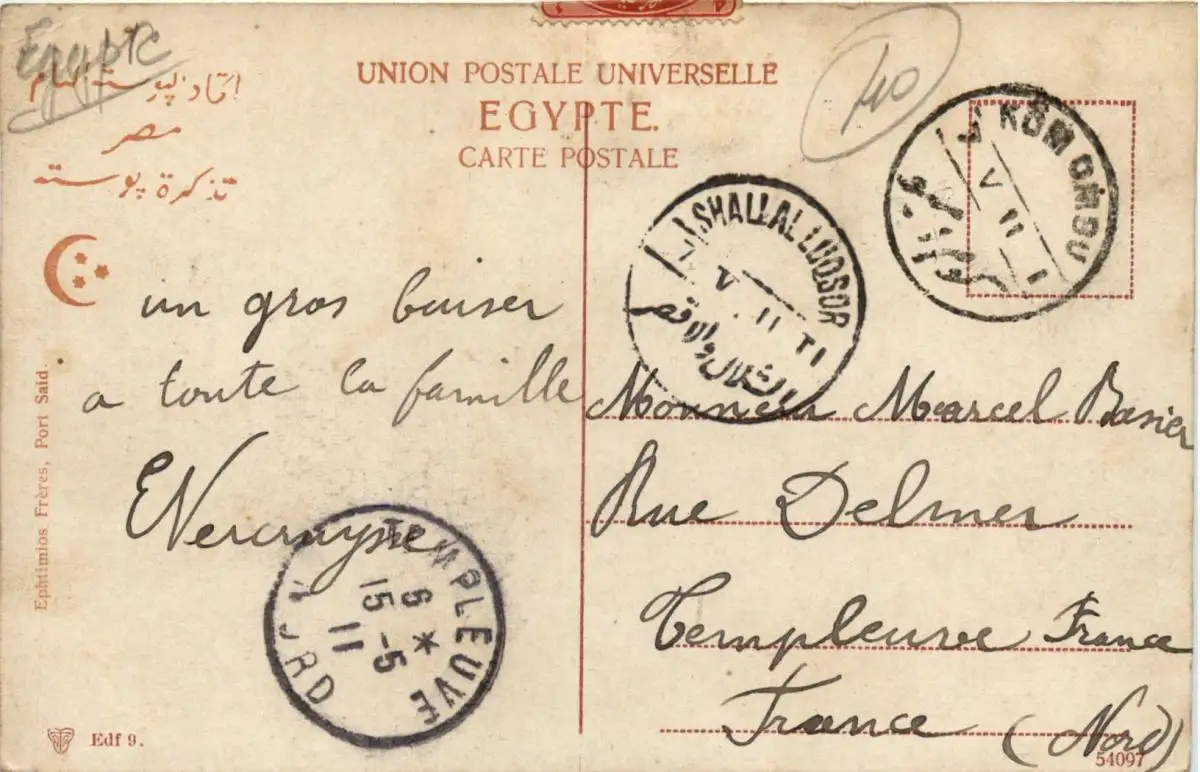 Egypte
اتحاد پوسته عام
مصر
تذكرة پوسته
UNION POSTALE UNIVERSELLE
EGYPTE.
CARTE POSTALE
40
KOM OMBO
V 11
SHALLAL LUQSOR
V 11 T1
الشلال والاقصر
un gros baiser
a toute la famille
EVercruysse
Monsieur Marcel Basier
Rue Delmer
Templeuve France
France (Nord)
TEMPLEUVE
6 *
15 - 5
11
NORD
Ephtimios Frères, Port Said.
Edf 9.
54097